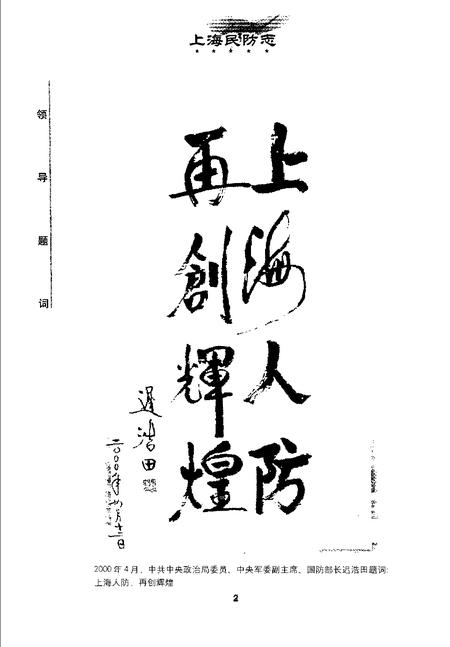 上海民防志
★★★★★
领导题词
上海人防
再創輝煌
遲浩田
二〇〇〇年四月十二日
2000年4月，中共中央政治局委员、中央军委副主席、国防部长迟浩田题词：
上海人防，再创辉煌
2